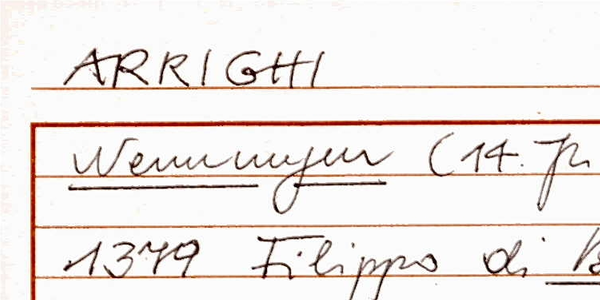 ARRIGHI
Nennungen (14. Jh
1379 Filippo di